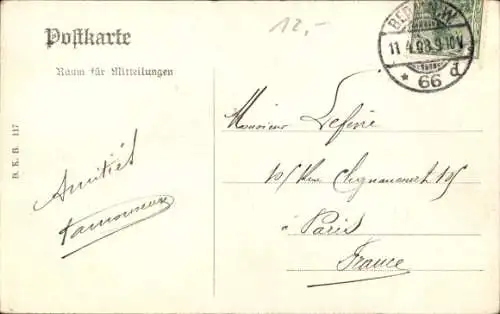 12,-
Postkarte
Raum für Mitteilungen
BERLIN.W.
11.4.08.9-10V.
* 66 d
B. K. B. 117
Amitiés
Monsieur Lefèvre
105 Rue Clignancourt 105
à Paris
France